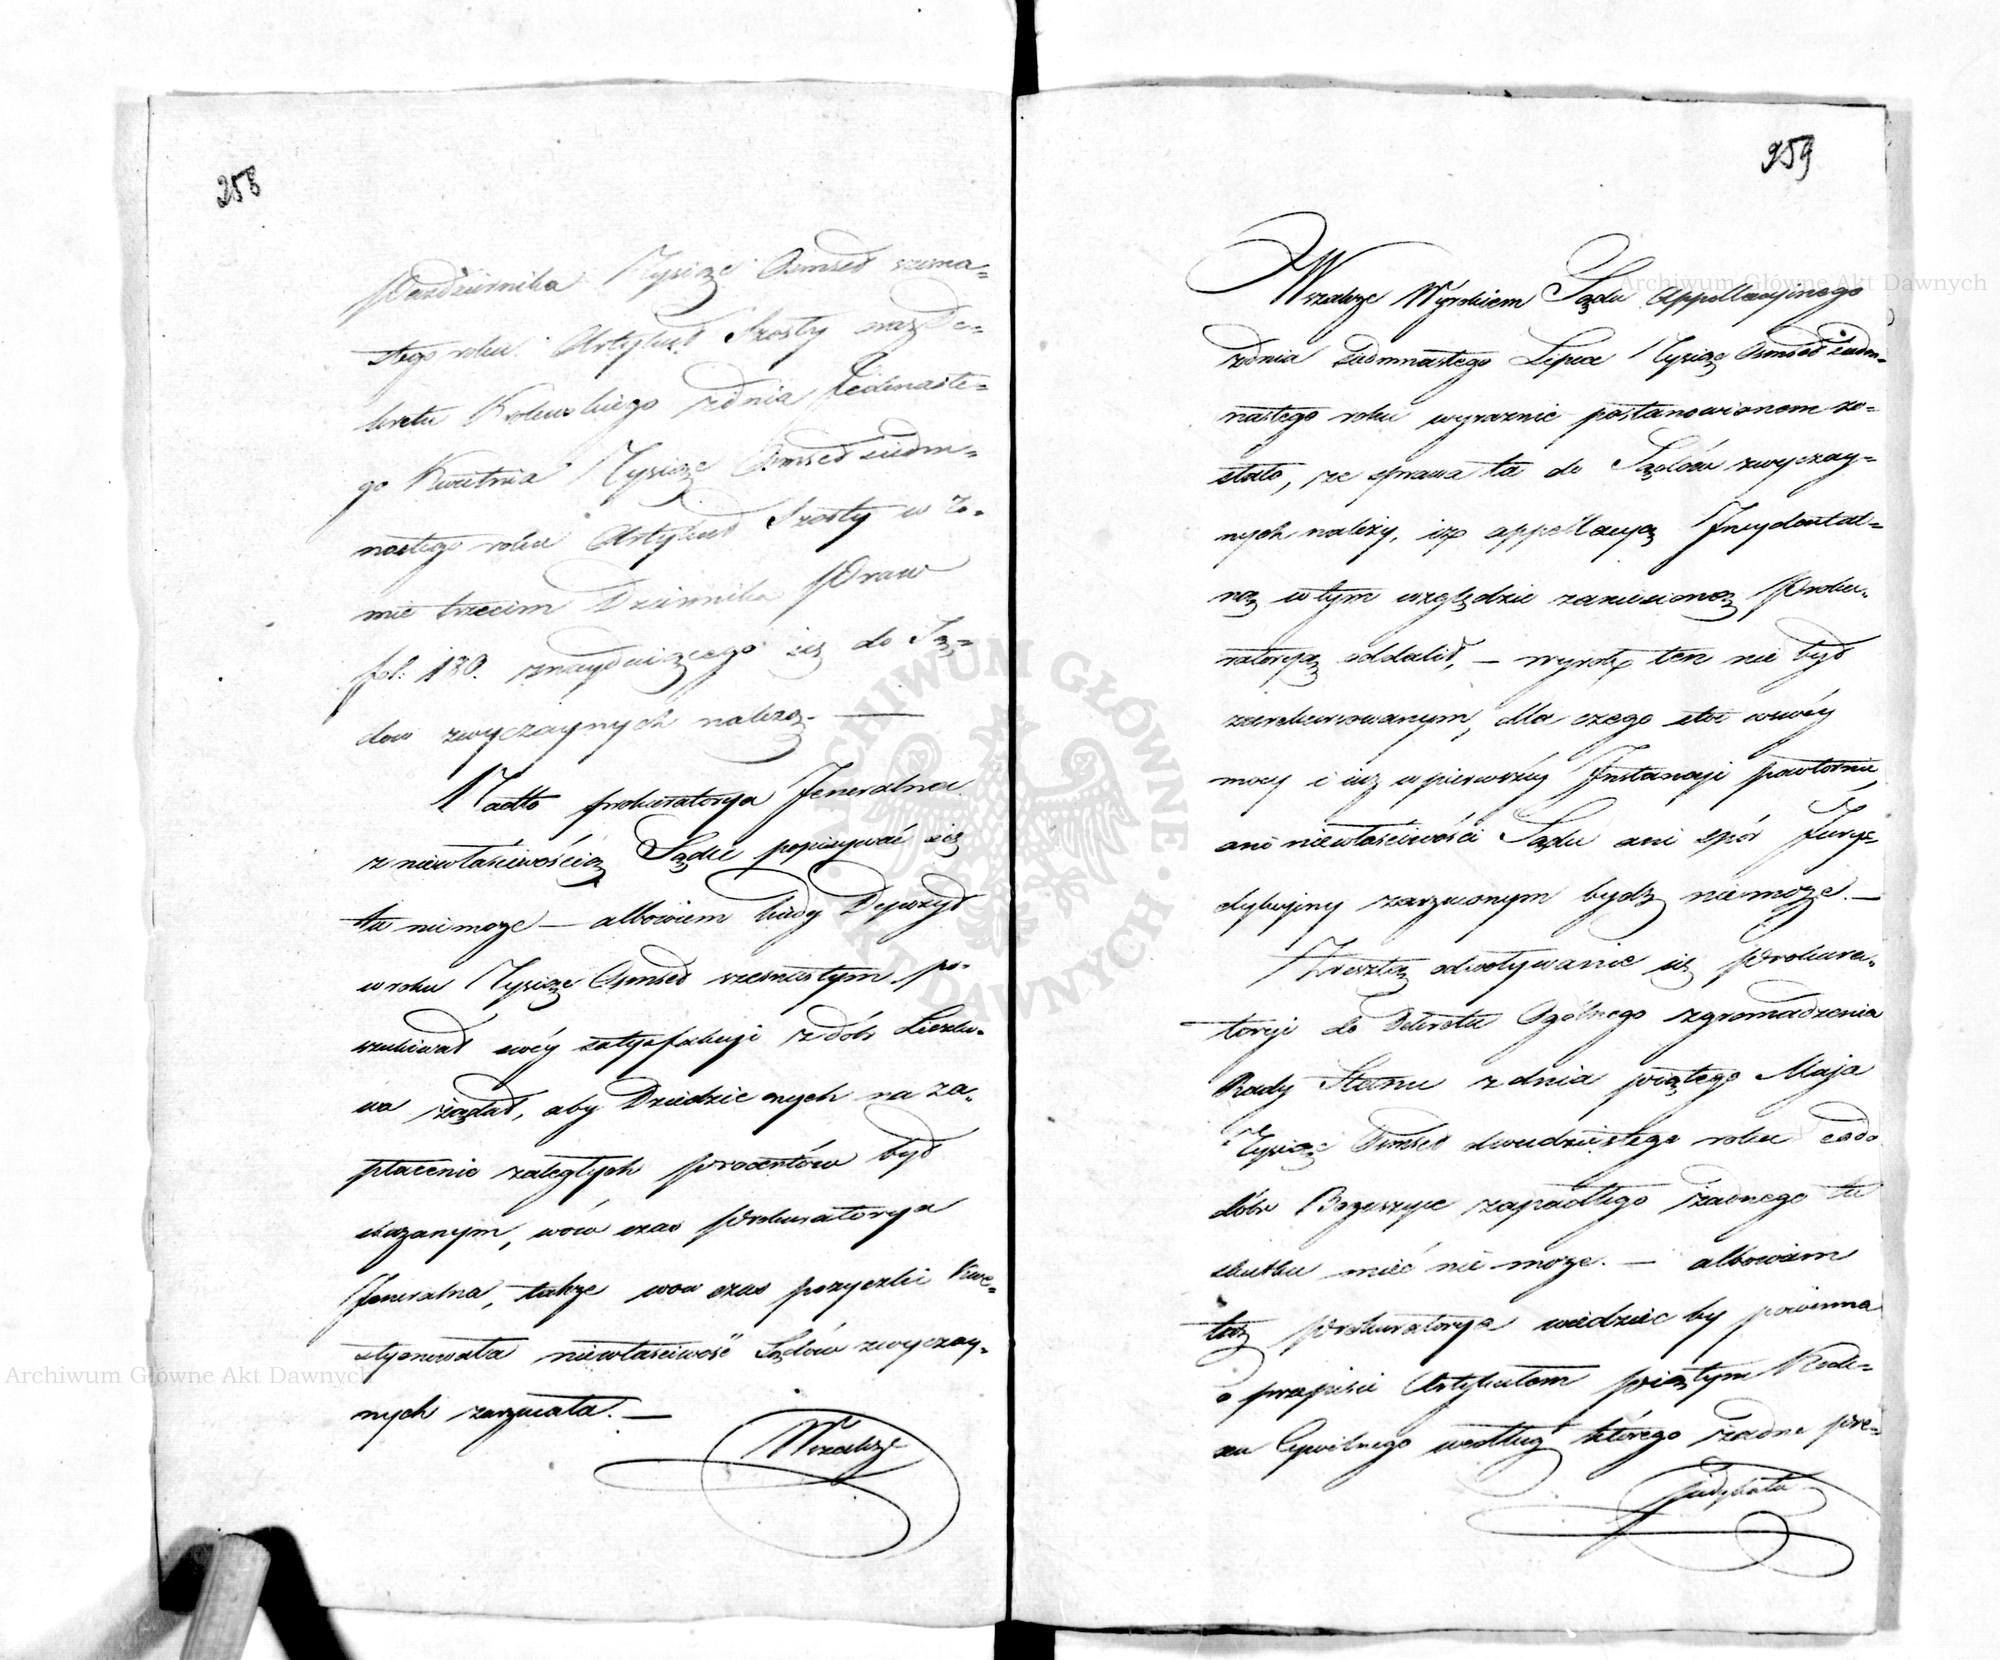 258
Października Tysiąc Osmset szesna=
stego roku Artykuł Szosty oraz De=
kretu Krolewskiego zdnia Jedenaste=
go Kwietnia Tysiąc Osmset siedm=
nastego roku Artykuł Szosty w To=
mie trzecim Dziennika Praw
fol: 180. znayduiącego się do Są=
dow zwyczaynych należą. —
Nadto prokuratorya Jeneralna
z niewłaściwością Sądu popisywać się
tu nie może — albowiem kiedy Depozyt
w roku Tysiąc Osmset szesnastym po=
szukiwał swéy satysfakcyi z dóbr
wa żądał, aby Dziedzic onych na za=
płacenie zaległych procentów był
skazanym, wów czas Prokuratorya
Jeneralna, także wow czas pożyczki kwe=
styonowała niewłaściwość Sądów zwyczay=
nych zarzucała. —
Wszakże
259
Wszakże Wyrokiem Sądu Appellacyinego
zdnia siedmnastego Lipca Tysiąc Osmset siedm=
nastego roku wyraznie postanowionem zo=
stało, że sprawa ta do Sądów zwyczay=
nych należy, iż appellacyą Incydental=
ną w tym względzie zaniesioną Proku=
ratoryą oddalił, — wyrok ten nie był
zarekursowanym, dla czego stoi w swéy
mocy i iuż w pierwszéy Instancyi powtórnie,
ani niewłaściwości Sądu ani spór Jurys=
dykcyiny zarzuconym bydź nie może. —
Zresztą odwoływanie się Prokura=
toryi do Dekretu Ogólnego zgromadzenia
Rady Stanu z dnia piątego Maja
Tysiąc Osmset dwudziestego roku co do
dóbr zapadłego żadnego tu
skutku mieć nie może. — albowiem
taż Prokuratorya wiedzieć by powinna
o przepisie Artykułem piątym Kode=
xu Cywilnego według którego żadne pre=
judykata
Archiwum Główne Akt Dawnych
Archiwum Główne Akt Dawnych
ARCHIWUM GŁÓWNE AKT DAWNYCH